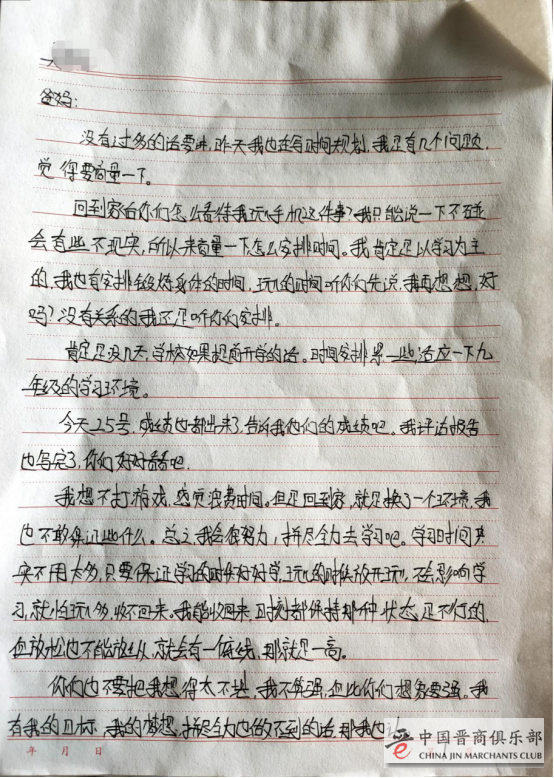 爸妈：
没有过多的话要讲，昨天我也在写时间规划，我还有几个问题，
觉得要商量一下。
回到家后你们怎么看待我玩手机这件事？我只能说一下不碰
会有些不现实，所以来商量一下怎么安排时间。我肯定是以学习为主
的，我也有安排锻炼身体的时间，玩儿的时间听你们先说，我再想想，好
吗？没有关系的我还是听你们安排。
肯定是没几天，学校如果提前开学的话。时间安排紧一些适应一下九
年级的学习环境。
今天25号，成绩也都出来了，告诉我他们的成绩吧。我评估报告
也写完了，你们好好看看吧。
我想不打游戏，感觉浪费时间。但是回到家，就是换了一个环境，我
也不敢保证些什么。总之我会很努力，拼尽全力去学习吧。学习时间其
实不用太多，只要保证学习的时候好好学，玩儿的时候放开玩儿，不会影响学
习，就怕玩儿多，收不回来。我能收回来，时刻都保持那种状态是不行的，
但放松也不能放纵，就会有一个底线，那就是一高。
你们也不要把我想得太不堪，我不算强，但比你们想象要强。我
有我的目标，我的梦想，拼尽全力也做不到的话，那我也认
年 月 日
中国晋商俱乐部
CHINA JIN MARCHANTS CLUB